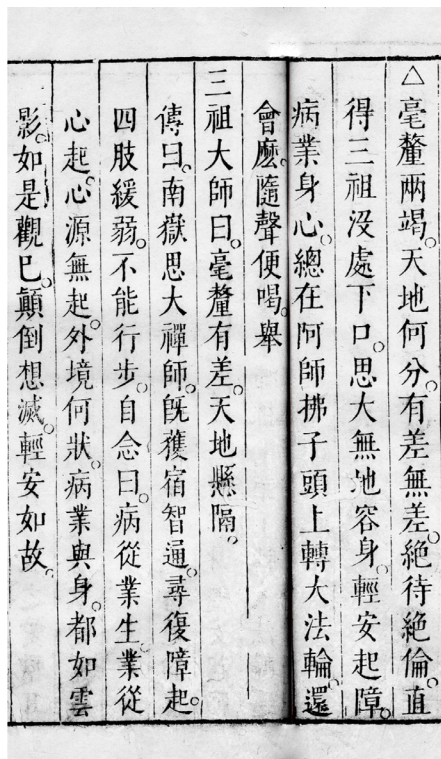 △毫釐兩竭。天地何分。有差無差。絕待絕倫。直
得三祖沒處下口。思大無地容身。輕安起障。
病業身心。總在阿師拂子頭上轉大法輪。還
會麼。隨聲便喝。舉
三祖大師曰。毫釐有差。天地懸隔。
傳曰。南嶽思大禪師。旣獲宿智通。尋復障起。
四肢緩弱。不能行步。自念曰。病從業生。業從
心起。心源無起。外境何狀。病業與身。都如雲
影。如是觀已。顛倒想滅。輕安如故。